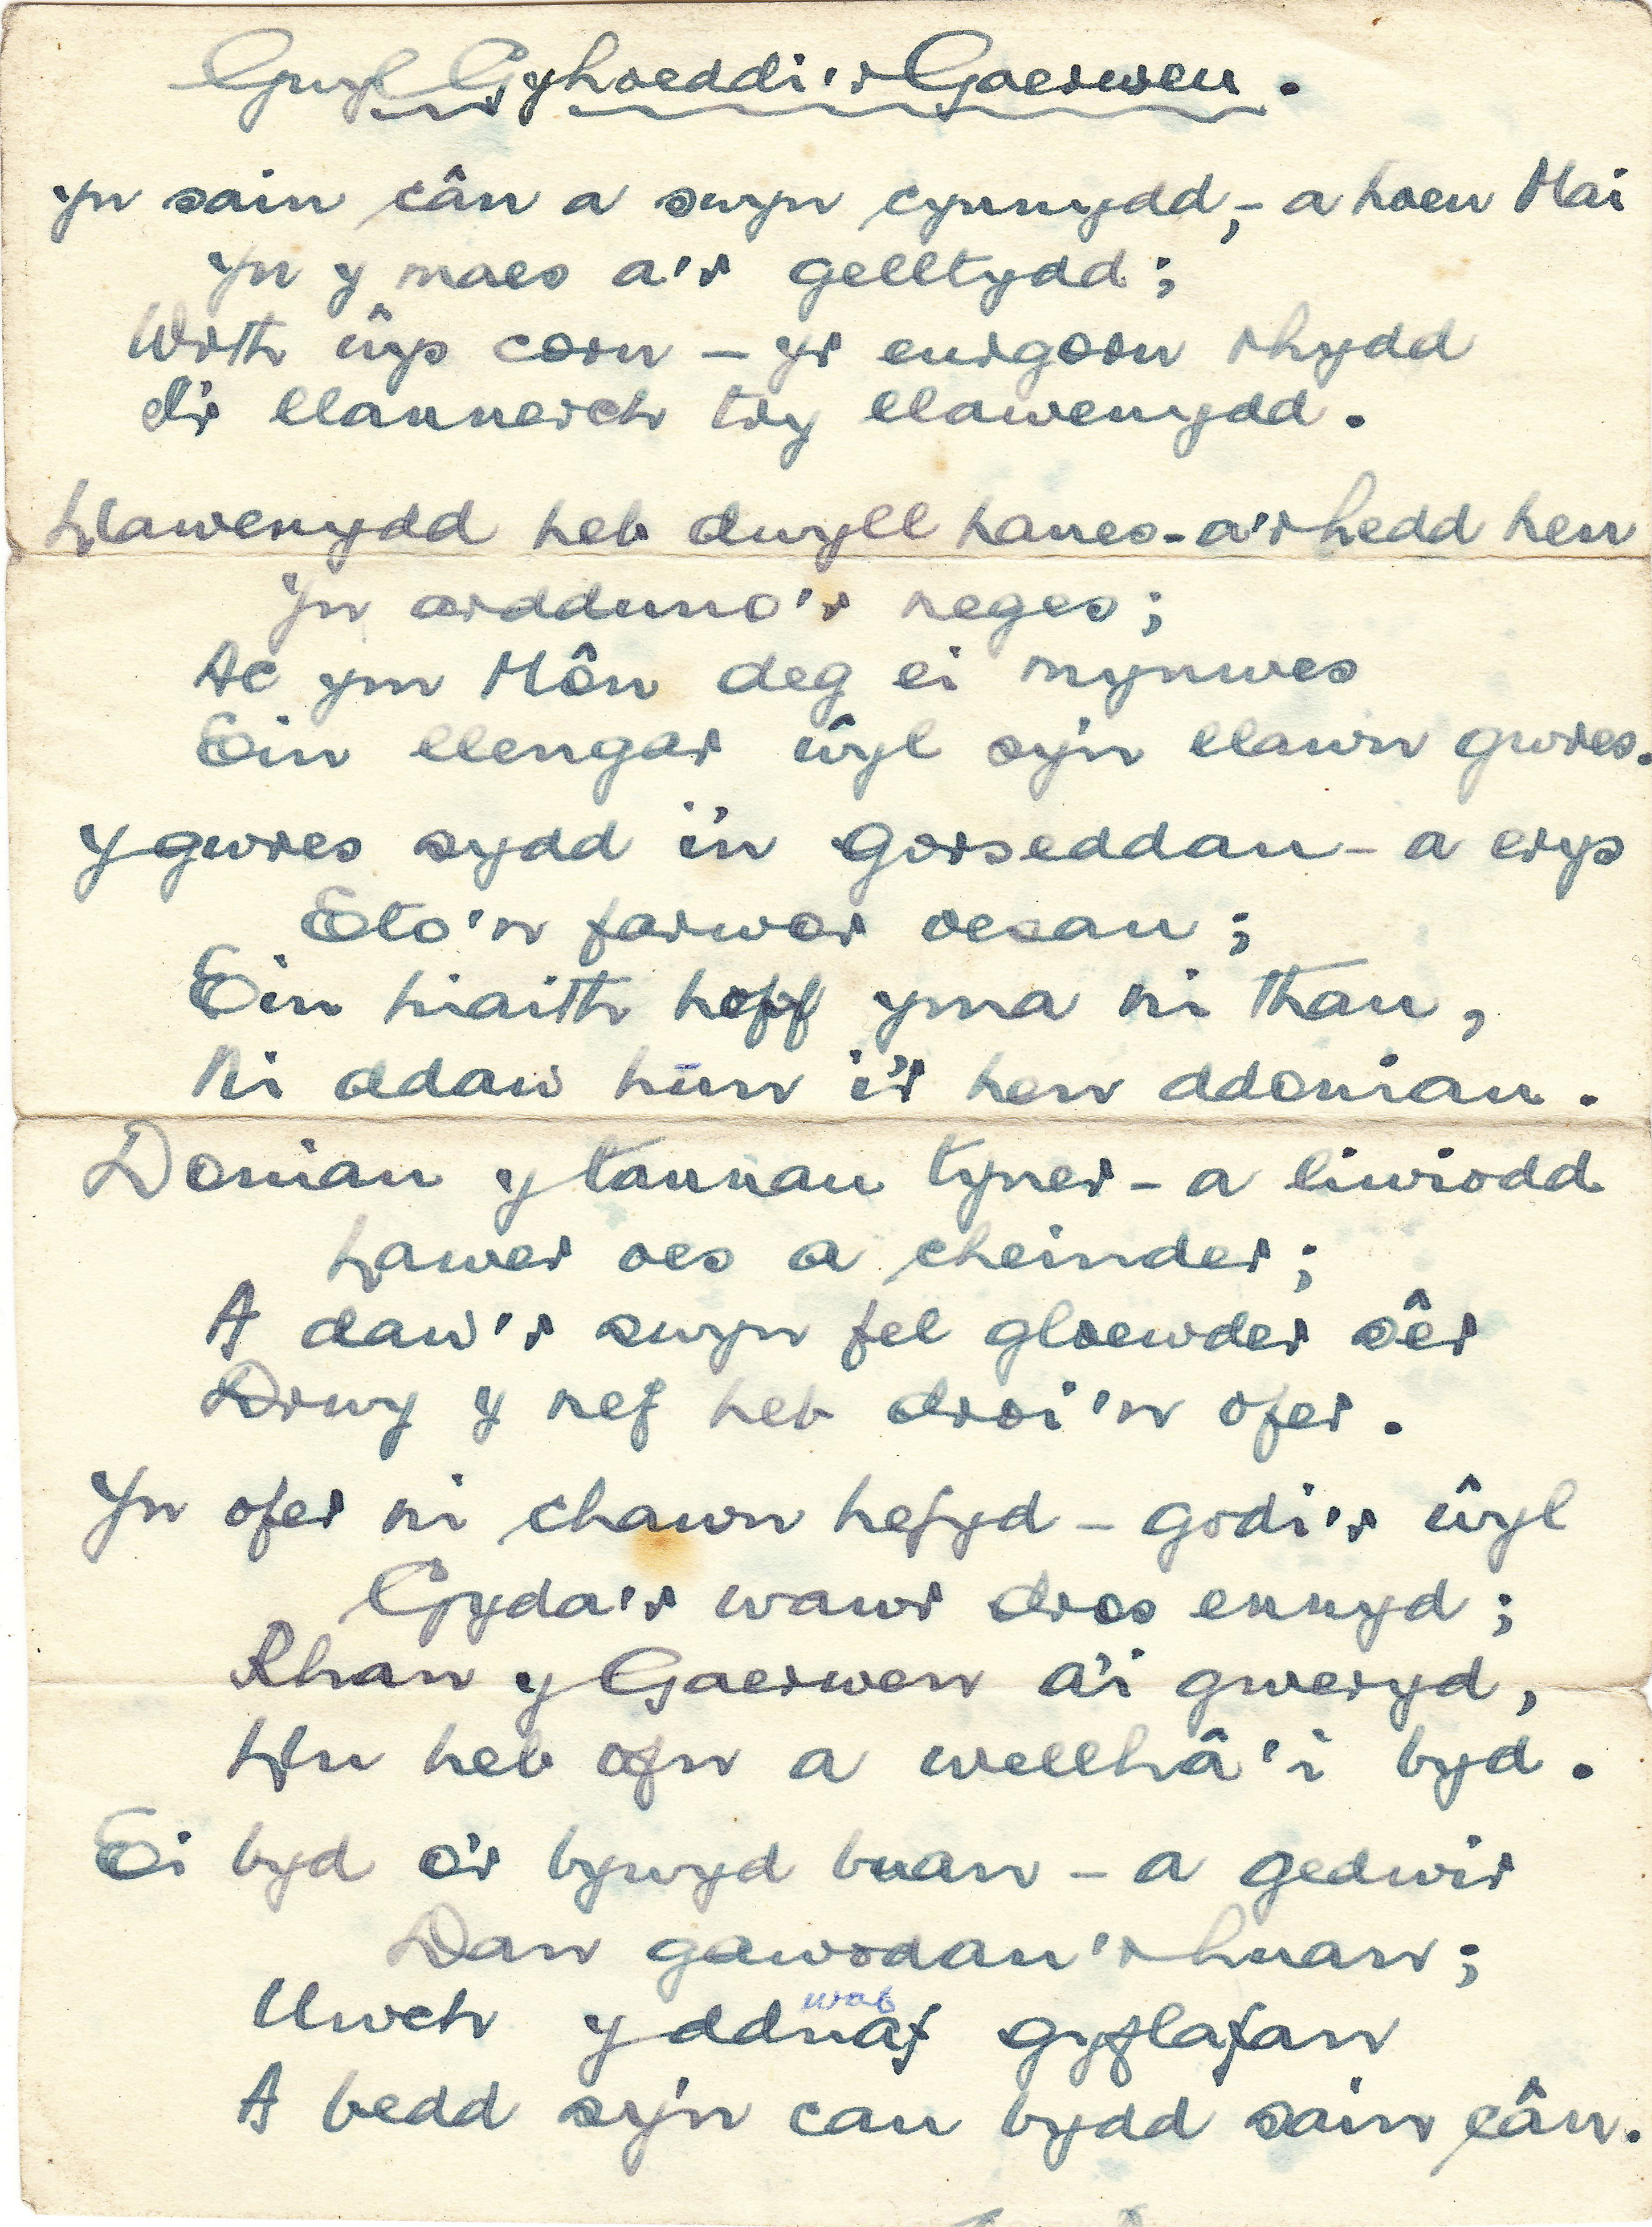 Gŵyl Gyhoeddi'r Gaerwen.
Yn sain cân a swyn cynnydd, - a hoen Mai
Yn y maes a'r gelltydd;
Wrth ŵys corn – yr eurgorn rhydd
I'r llannerch try llawenydd.
Llawenydd heb dwyll hanes - a'r hedd hen
Yn ardduno'r neges;
Ac ym Môn deg ei mynwes
Ein llengar ŵyl sy'n llawn gwres.
Y gwres sydd i'n Gorseddau - a erys
Eto'n farwor oesau;
Ein hiaith hoff yma ni thau,
Ni ddaw hun i'r hen ddoniau.
Doniau y tannau tyner - a liwiodd
Lawer oes a cheinder;
A daw'r swyn fel gloewder sêr
Drwy y nef heb droi'n ofer.
Yn ofer ni chawn hefyd – godi'r ŵyl
Gyda'r wawr dros ennyd;
Rhan y Gaerwen a'i gweryd,
Llu heb ofn a wellhâ'i byd.
Ei byd o'r bywyd buan – a gedwir
Dan gawodau'r huan;
Uwch y dduaf gyflafan
A bedd sy'n cau bydd sain cân.